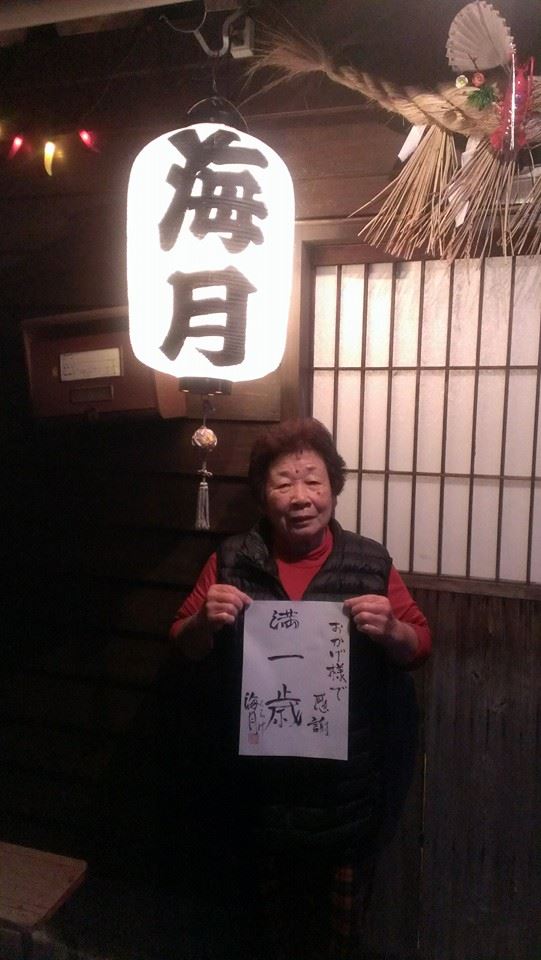 海月
おかげ様で
感謝
満一歳
くらげ
海月